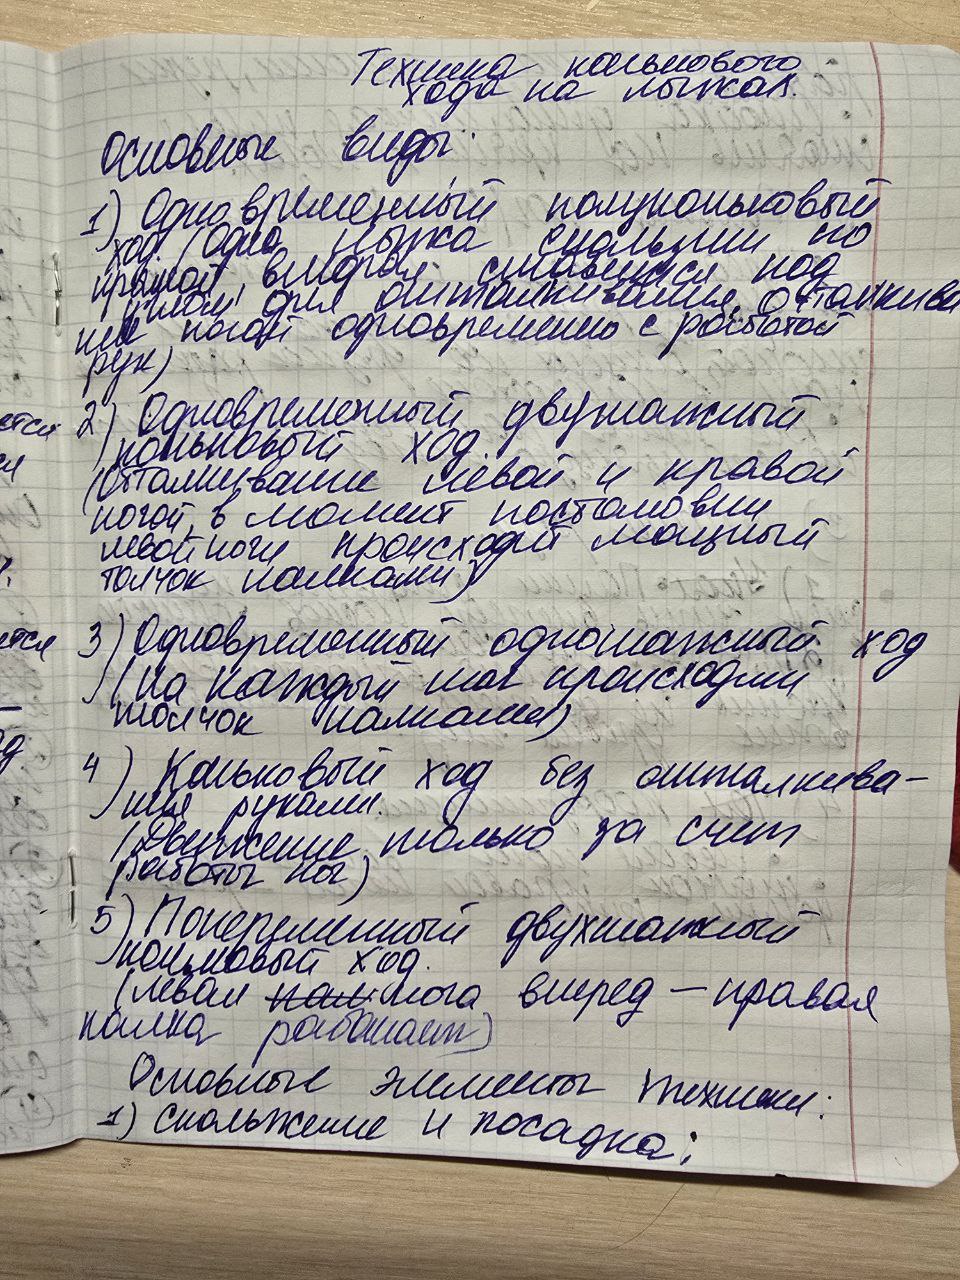 Техника конькового
хода на лыжах.
Основные виды:
1) Одновременный полуконьковый
ход (Одна лыжа скользит по
прямой, вторая ставится под
углом для отталкивания. Отталкива
ние ногой одновременно с работой
рук)
2) Одновременный двухшажный
коньковый ход.
(Отталкивание левой и правой
ногой, в момент постановки
левой ноги происходит мощный
толчок палками)
3) Одновременный одношажный ход
(на каждый шаг происходит
толчок палками)
4) Коньковый ход без отталкива-
ния руками.
(Движение только за счет
работы ног)
5) Попеременный двухшажный
коньковый ход.
(левая нога вперед – правая
палка работает)
Основные элементы техники:
1) скольжение и посадка;